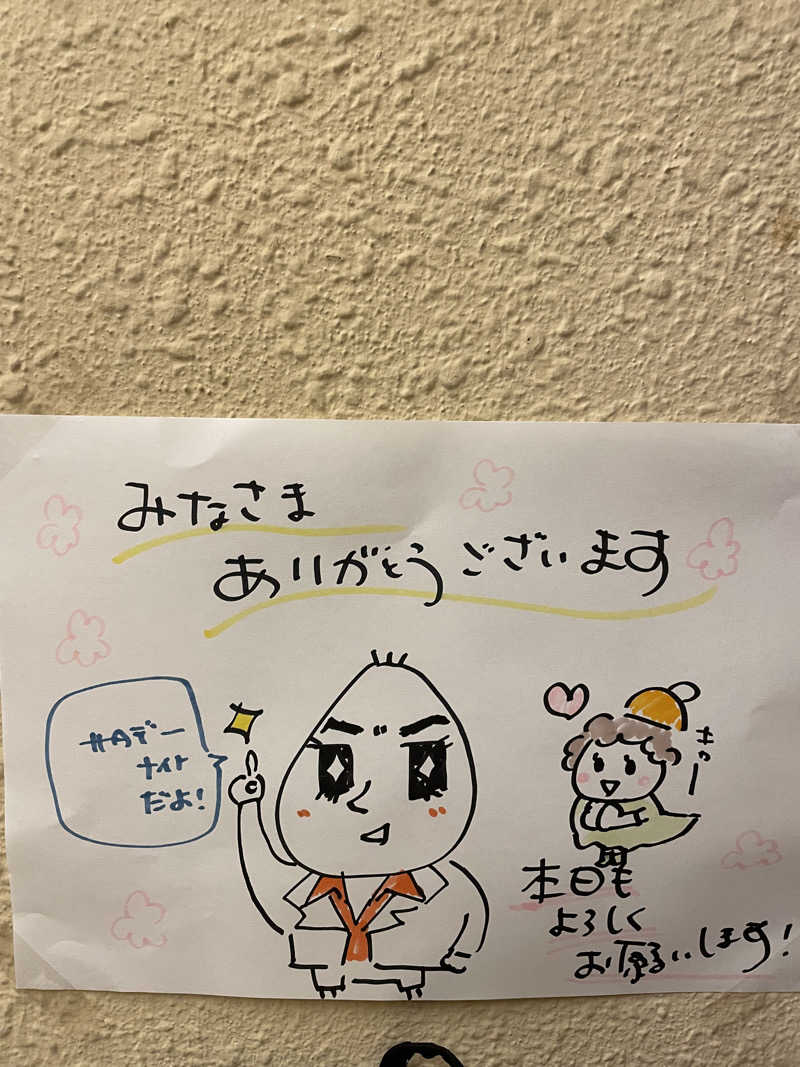 みなさま
ありがとうございます
サタデー
ナイト
だよ!
きゅー
本日も
よろしく
お願いします!